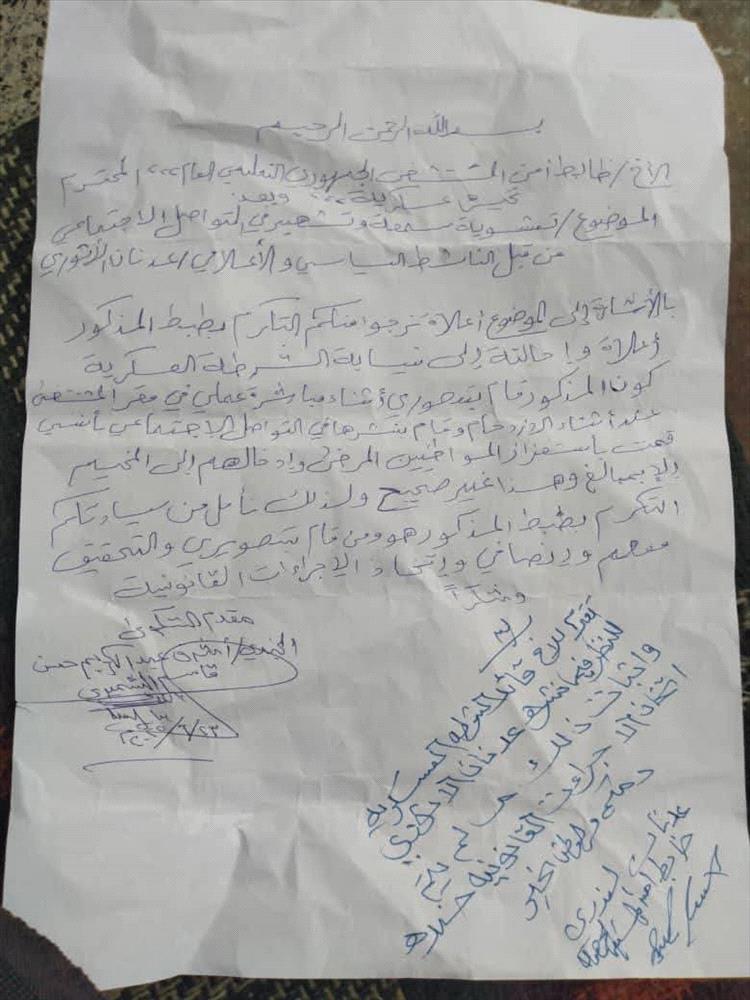 بسم الله الرحمن الرحيم
الأخ / ظابط أمن المستشفى الجمهوري التعليمي العام ،،، المحترم
تحية عسكرية ،،، وبعد
الموضوع / تشوية سمعة وتشهير في التواصل الاجتماعي
من قبل الناشط السياسي والأعلامي / عدنان الأثوري
بالأشارة إلى الموضوع أعلاة نرجوا منكم التكرم بظبط المذكور
أعلاة وإحالتة إلى نيابة الشرطة العسكرية
كون المذكور قام بتصوري أثناء مباشرة عملي في مقر المستشفى
عند أثناء الازدحام وقام بنشرها في التواصل الاجتماعي بأنني
قمت باستفزاز المواطنين المرضى وإدخالهم إلى المخيم
إلا بمبالغ وهذا غير صحيح ولذلك نأمل من سيادتكم
التكرم بظبط المذكور هو ومن قام بتصويري والتحقيق
معهم وإنصافي وإتخاذ الإجراءات القانونية
وشكراً
مقدم الشكوى
الجندي / أشرف عبدالكريم حسن
قاسم الشميري
الأخ قائد الشرطة العسكرية
للنظر فيما نشره عدنان الأثوري
واثبات ذلك مالم يتم
اتخاذ الاجراءات القانونية ضده